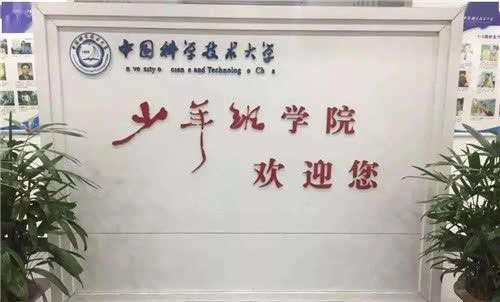 中国科学技术大学
niversity o cience and Technolog o Ch a
少年班学院
欢迎您